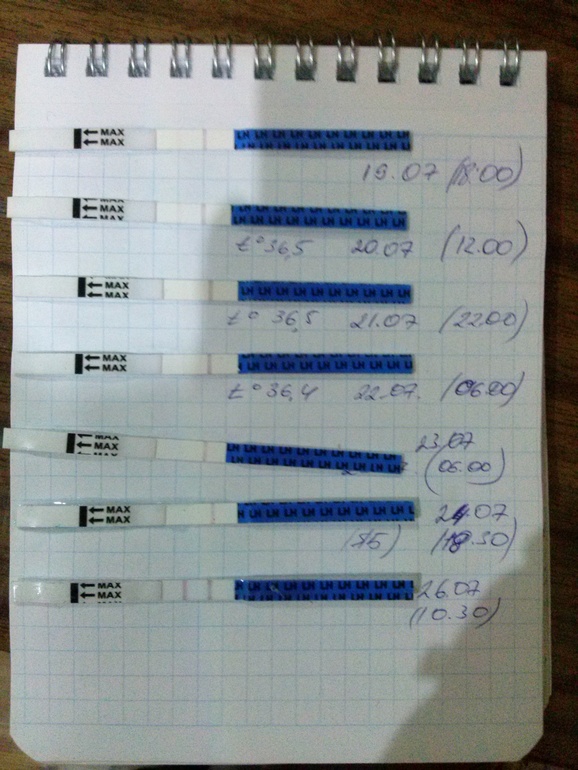 ← MAX
← MAX
LH LH LH LH LH LH LH LH LH
19.07 (18.00)
← MAX
← MAX
LH LH LH LH LH LH LH LH LH
t° 36,5 20.07 (12.00)
← MAX
← MAX
LH LH LH LH LH LH LH LH LH
t° 36,5 21.07 (22.00)
← MAX
← MAX
LH LH LH LH LH LH LH LH LH
t° 36,4 22.07. (06.00)
← MAX
← MAX
LH LH LH LH LH LH LH LH LH
23.07
(06.00)
← MAX
← MAX
LH LH LH LH LH LH LH LH LH
24.07
(18.30)
← MAX
← MAX
LH LH LH LH LH LH LH LH LH
26.07
(10.30)